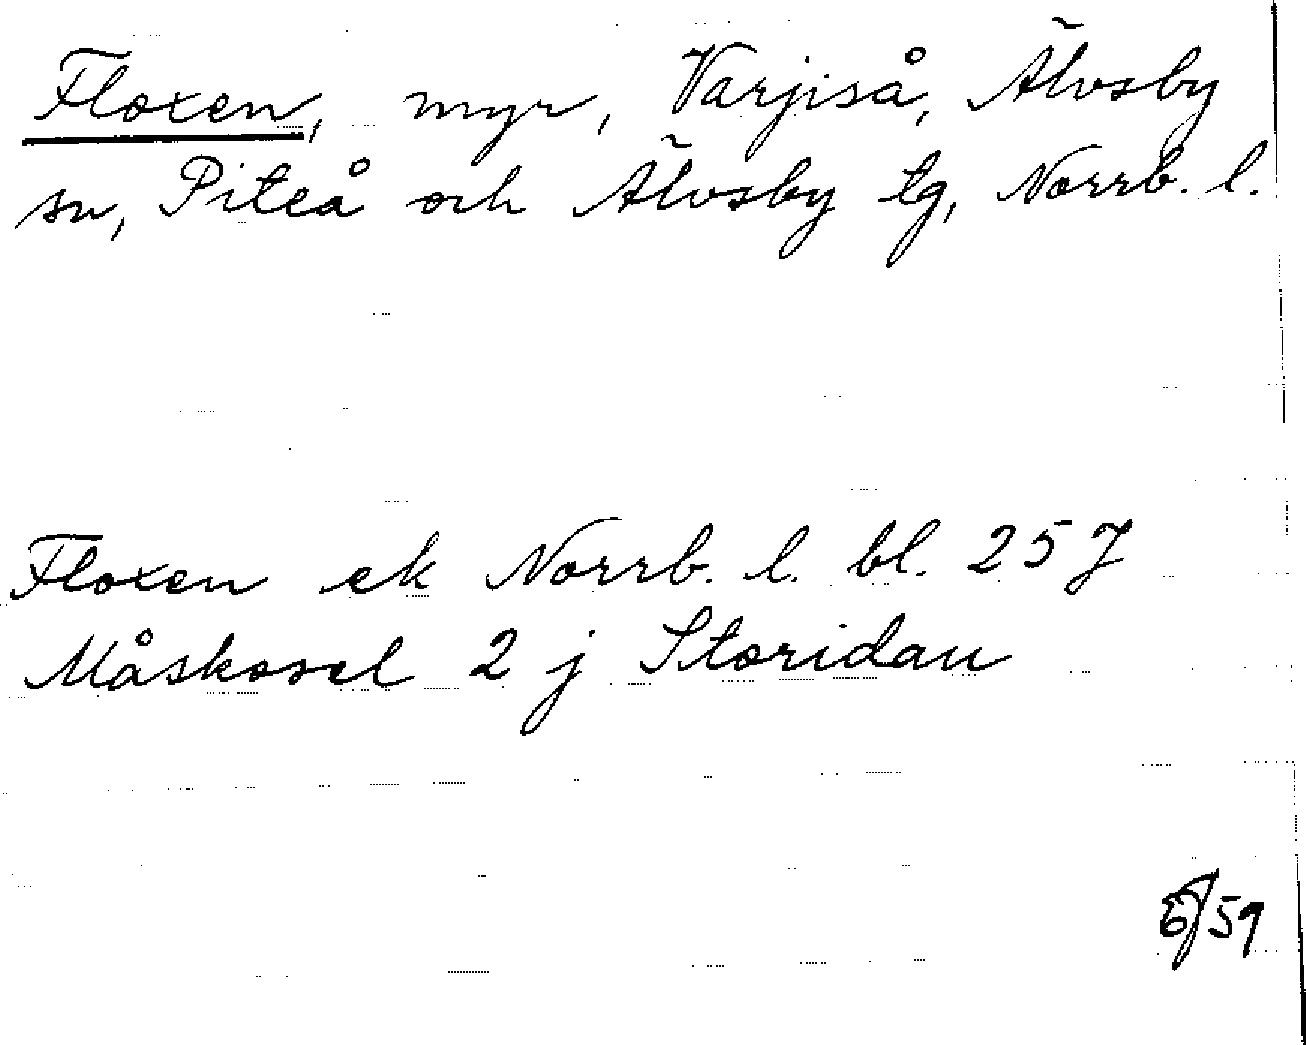 Floxen, myr, Varjiså, Älvsby
sn, Piteå och Älvsby tg, Norrb. l.
Floxen ek Norrb. l. bl. 25 J
Måskosel 2 j Storidan
59